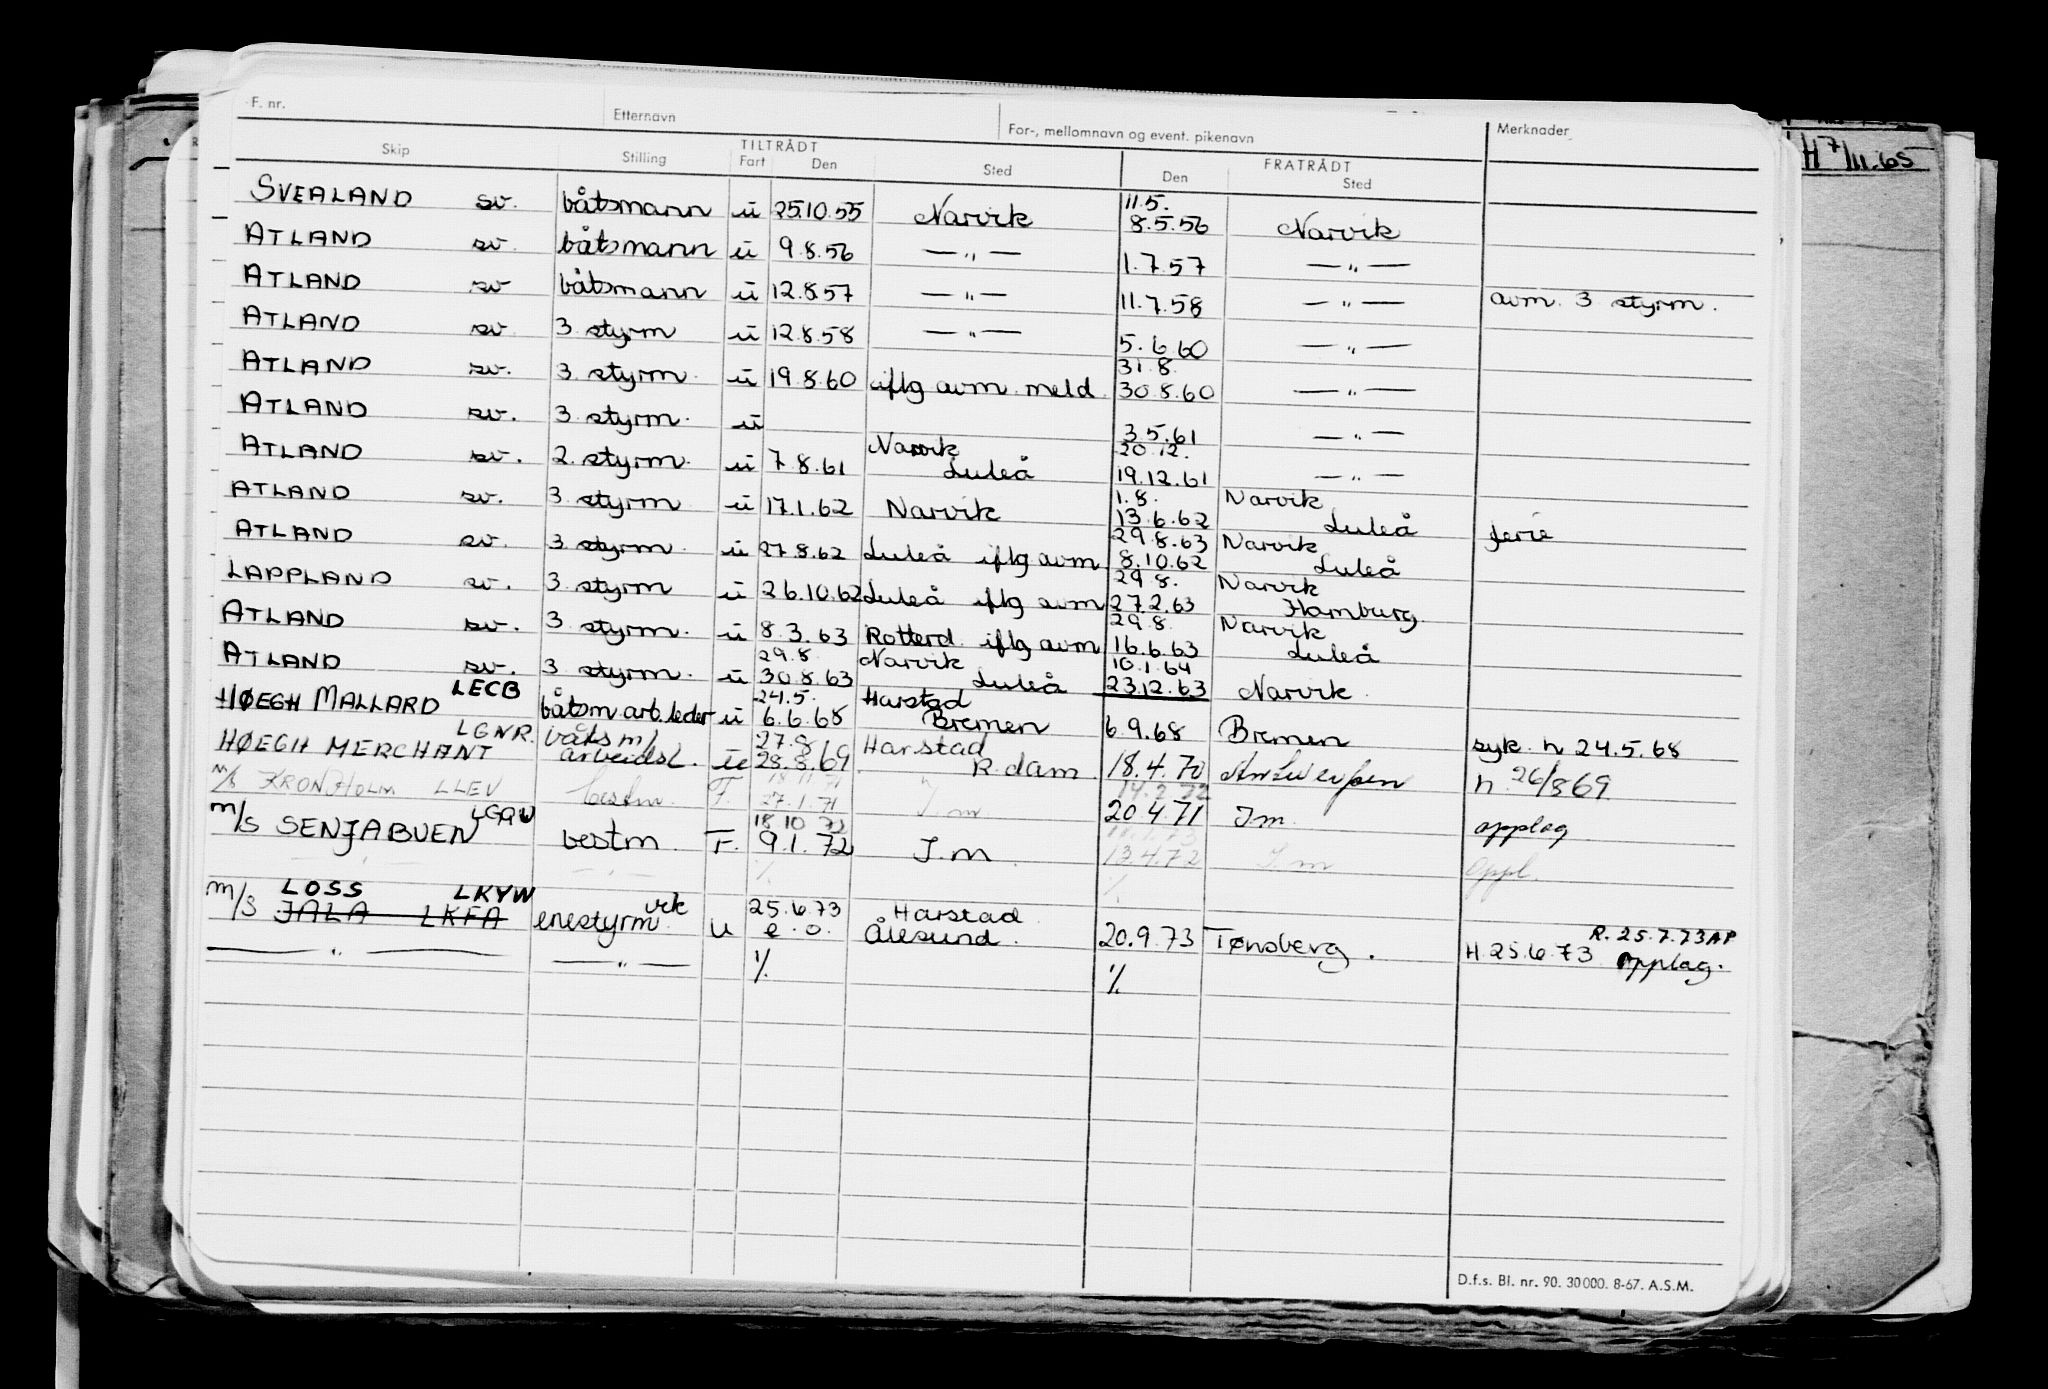 F. nr. Etternavn For-, mellomnavn og event. pikenavn Merknader
H 7/11.65
Skip Stilling TILTRÅDT Fart Den Sted FRATRÅDT Den Sted
SVEALAND sv. båtsmann u 25.10.55 Narvik 11.5. 8.5.56 Narvik
ATLAND sv. båtsmann u 9.8.56 —„— 1.7.57 —„—
ATLAND sv båtsmann u 12.8.57 —„— 11.7.58 —„— avm. 3 styrm.
ATLAND sv. 3 styrm u 12.8.58 —„— 5.6.60 —„—
ATLAND sv. 3 styrm. u 19.8.60 iflg avm. meld. 31.8. 30.8.60 —„—
ATLAND sv. 3 styrm. u 3.5.61 —„—
ATLAND sv. 2. styrm. u 7.8.61 Narvik Luleå 20.12. 19.12.61 —„—
ATLAND sv. 3 styrm u 17.1.62 Narvik 1.8. 13.6.62 Narvik Luleå ferie
ATLAND sv. 3 styrm. u 27.8.62 Luleå iflg avm. 29.8.63 8.10.62 Narvik Luleå
LAPPLAND sv. 3 styrm u 26.10.62 Luleå iflg avm 29.8. 27.2.63 Narvik Hamburg.
ATLAND sv. 3 styrm. u 8.3.63 Rotterd. iflg avm 29.8. 16.6.63 Narvik Luleå
ATLAND sv. 3 styrm. u 29.8. 30.8.63 Narvik Luleå 10.1.64 23.12.63 Narvik.
HØEGH MALLARD LECB båtsm arb. leder u 24.5. 6.6.68 Harstad Bremen 6.9.68 Bremen syk. h 24.5.68
HØEGH MERCHANT LGNR. båtsm/ arbeidsl. u 27.8. 28.8.69 Harstad R.dam 18.4.70 Antwerpen h. 26/8 69
m/s KRONHOLM LLEV bestm. F. 18.11.71 27.1.71 I.m 14.2.72 20.4.71 I.m. opplag
m/s SENJABUEN LGQW bestm. F. 18.10.72 9.1.72 I.m. 13.4.72 I.m oppl.
m/s LOSS LKYW
JALA LKFA enestyrm. vik u 25.6.73 e.o. Harstad Ålesund. 20.9.73 Tønsberg. H. 25.6.73 R. 25.7.73 AP opplag.
—„— —„— % %
D.f.s. Bl. nr. 90. 30000. 8-67. A.S.M.